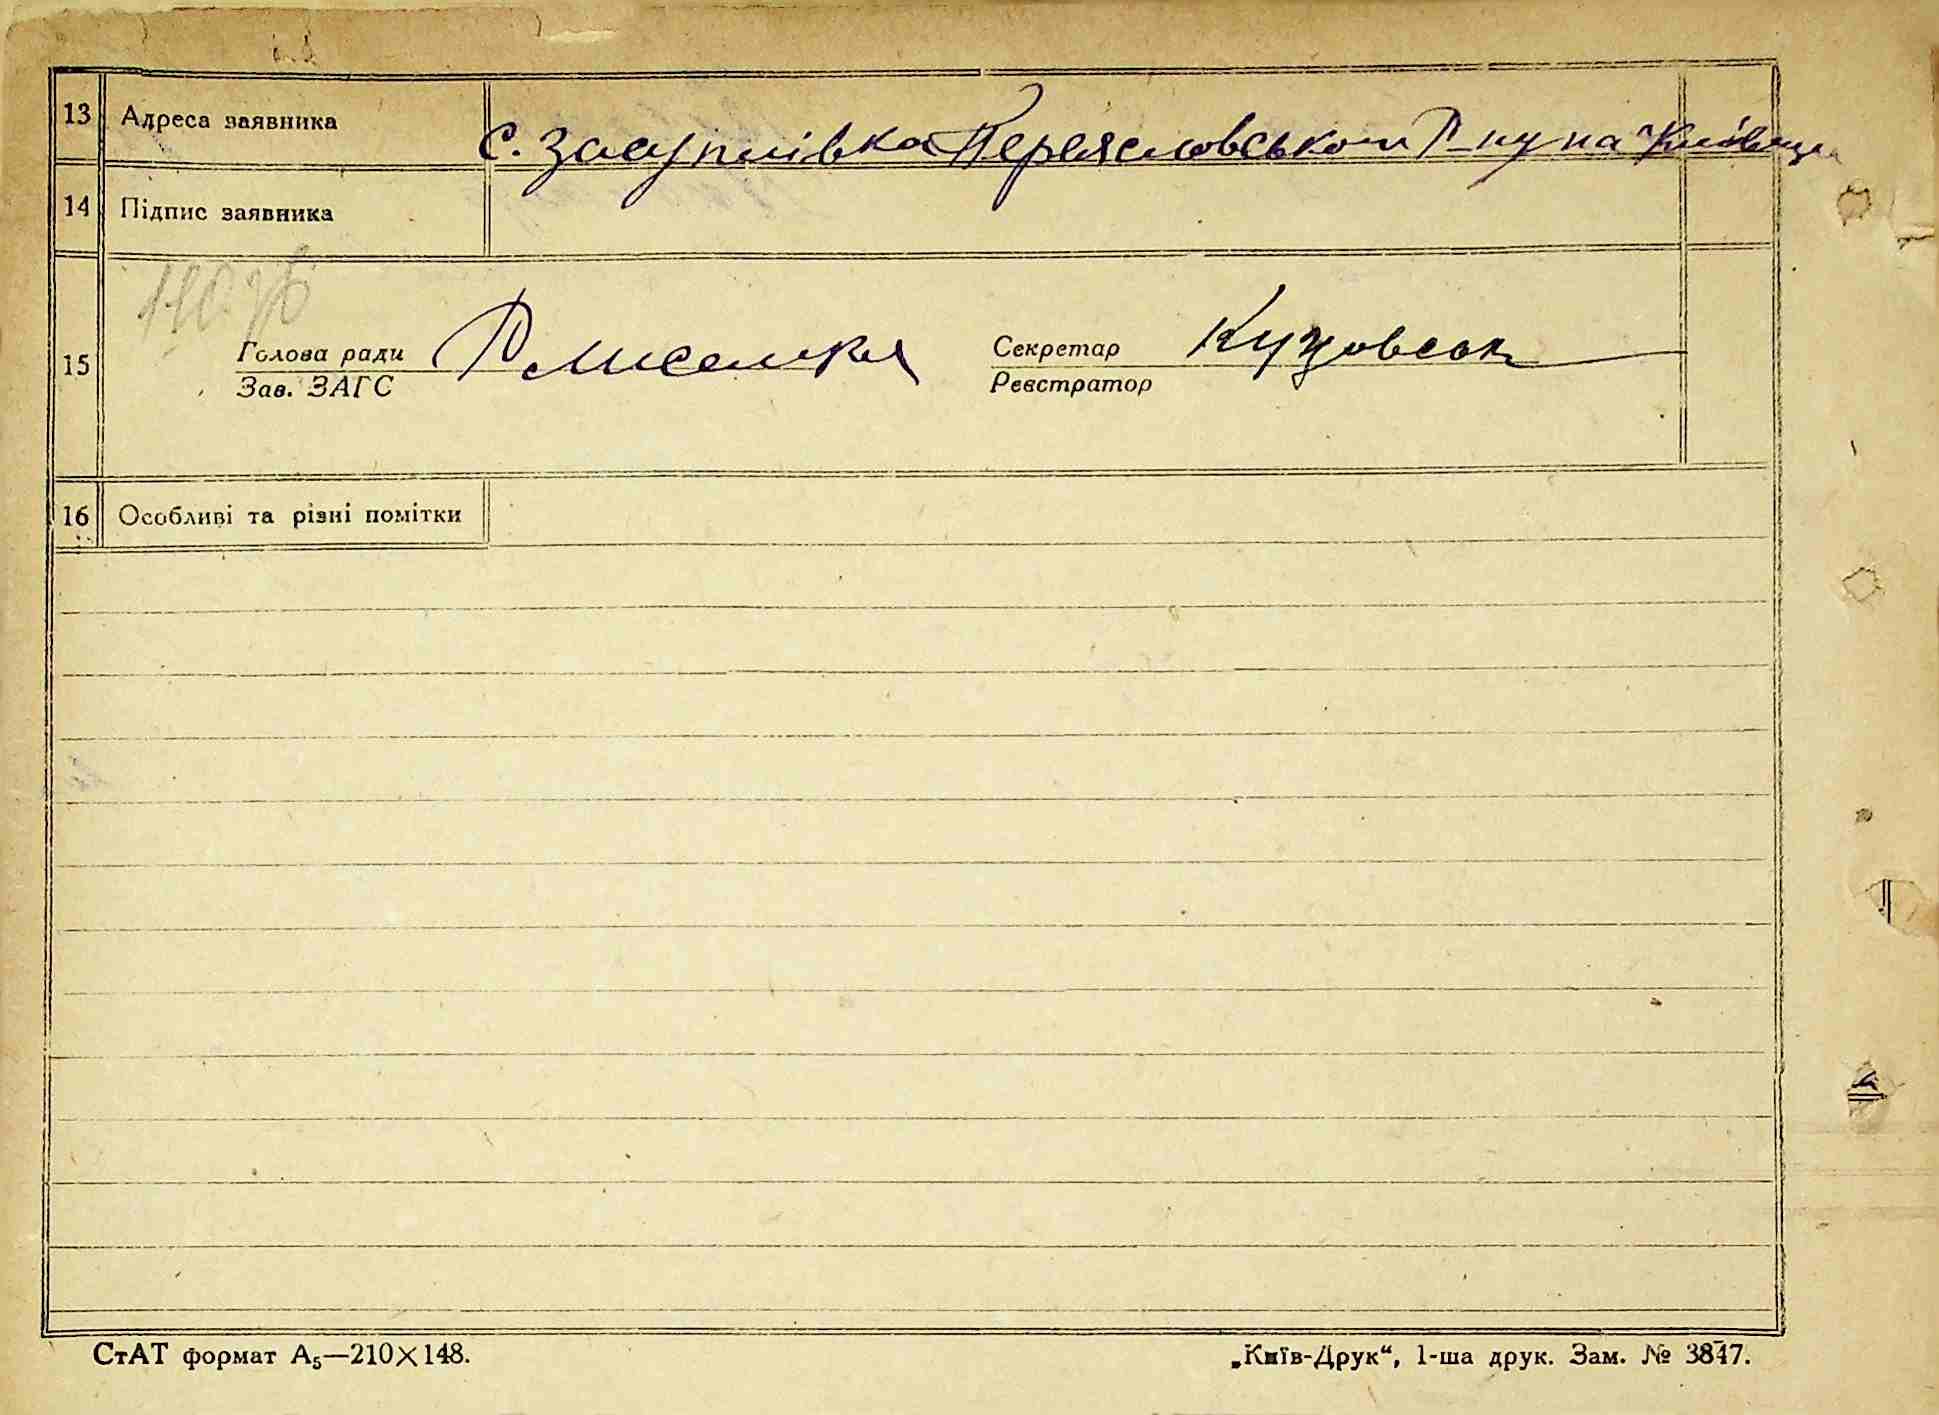 13 Адреса заявника с. Засупоївка Переяславського Р-ну на Київщ
14 Підпис заявника
15
Голова ради Секретар
Зав. ЗАГС Реєстратор
16 Особливі та різні помітки
СтАТ формат А₅—210×148. „Київ-Друк“, 1-ша друк. Зам. № 3847.